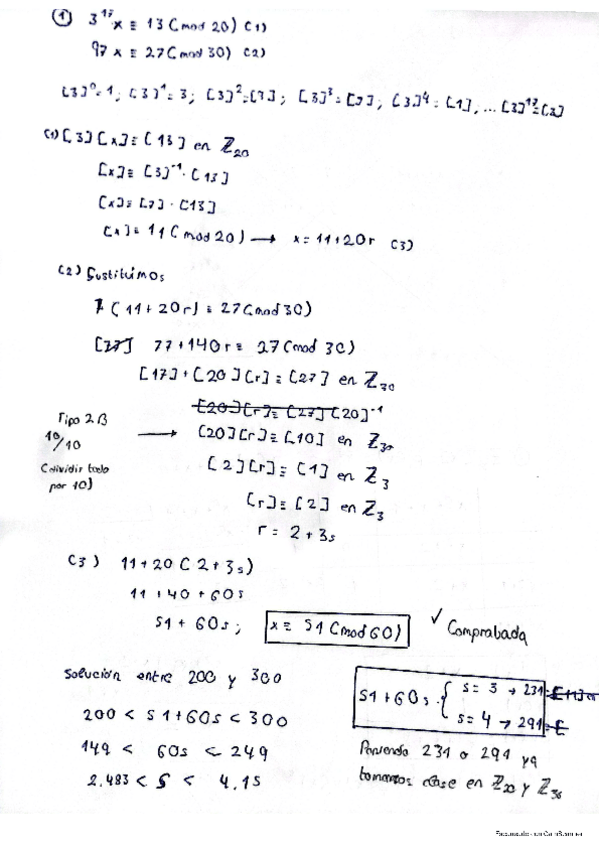 ① 3¹⁷·x ≡ 13 (mod 20) (1)
97 x ≡ 27 (mod 30) (2)
[3]⁰=1; [3]¹=3; [3]²=[9]; [3]³=[7]; [3]⁴=[1], ... [3]¹⁷=[3]
(1) [3][x]≡[13] en ℤ₂₀
[x]≡[3]⁻¹·[13]
[x]≡[7]·[13]
[x]=11 (mod 20) → x=11+20r (3)
(2) Sustituimos
7(11+20r)≡27 (mod 30)
77+140r≡27 (mod 30)
[17]+[20][r]≡[27] en ℤ₃₀
[20][r]≡[27][20]⁻¹
Tipo 2B
10/10
(dividir todo por 10)
→ [20][r]≡[10] en ℤ₃₀
[2][r]≡[1] en ℤ₃
[r]≡[2] en ℤ₃
r=2+3s
(3) 11+20(2+3s)
11+40+60s
51+60s; x≡51 (mod 60) ✓ Comprobada
Solución entre 200 y 300
200<51+60s<300
149<60s<249
2.483<s<4.15
51+60s { s=3→231
s=4→291
Poniendo 231 o 291 ya
tomamos clase en ℤ₂₀ y ℤ₃₀
Escaneado con CamScanner